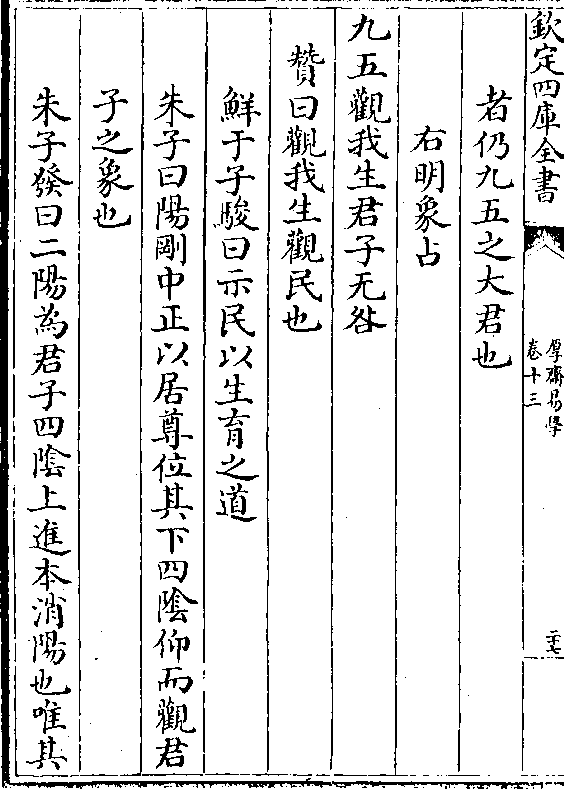 欽定四庫全書
厚齋易學
卷十三
二十七
者仍九五之大君也
右明象占
九五觀我生君子无咎
贊曰觀我生觀民也
鮮于子駿曰示民以生育之道
朱子曰陽剛中正以居尊位其下四陰仰而觀君
子之象也
朱子發曰二陽為君子四陰上進本消陽也唯其